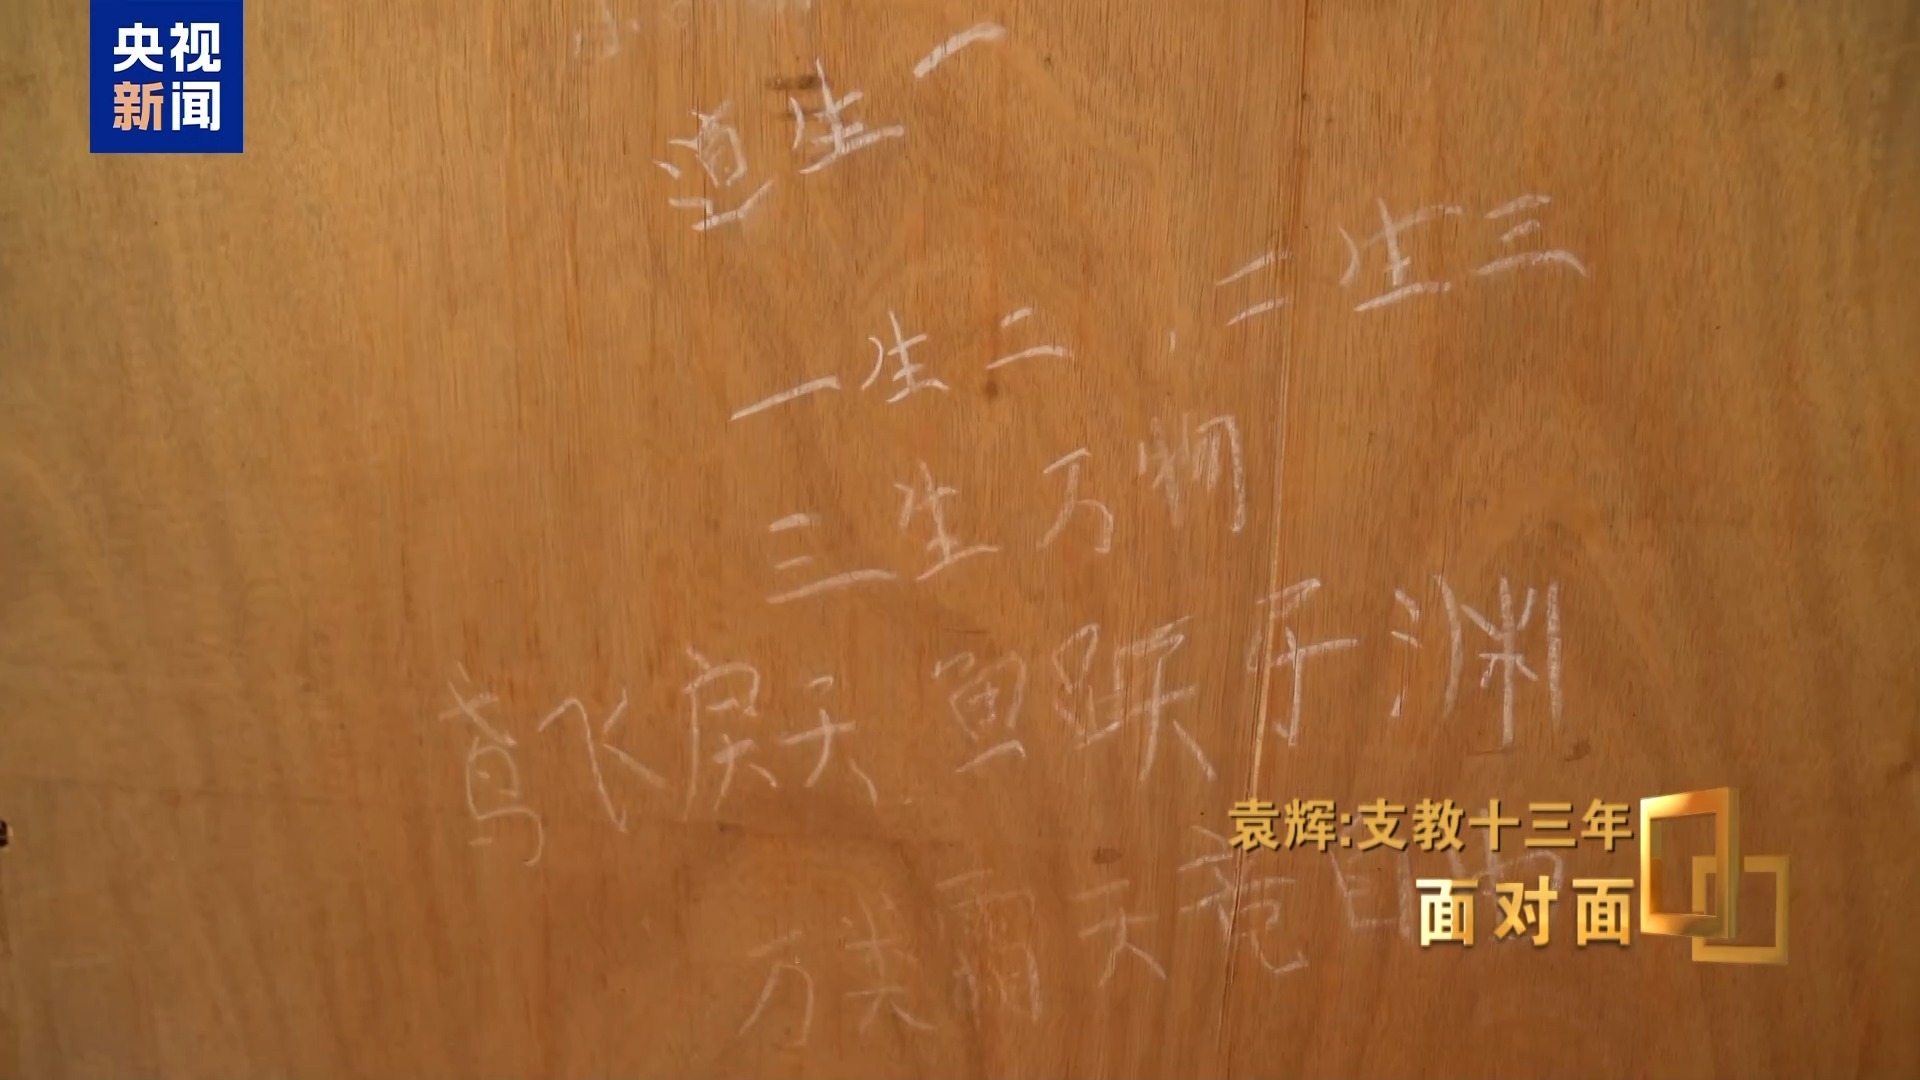 央视
新闻
道生一
一生二，二生三
三生万物
鸢飞戾天 鱼跃于渊
袁辉:支教十三年
面对面
万类霜天竞自